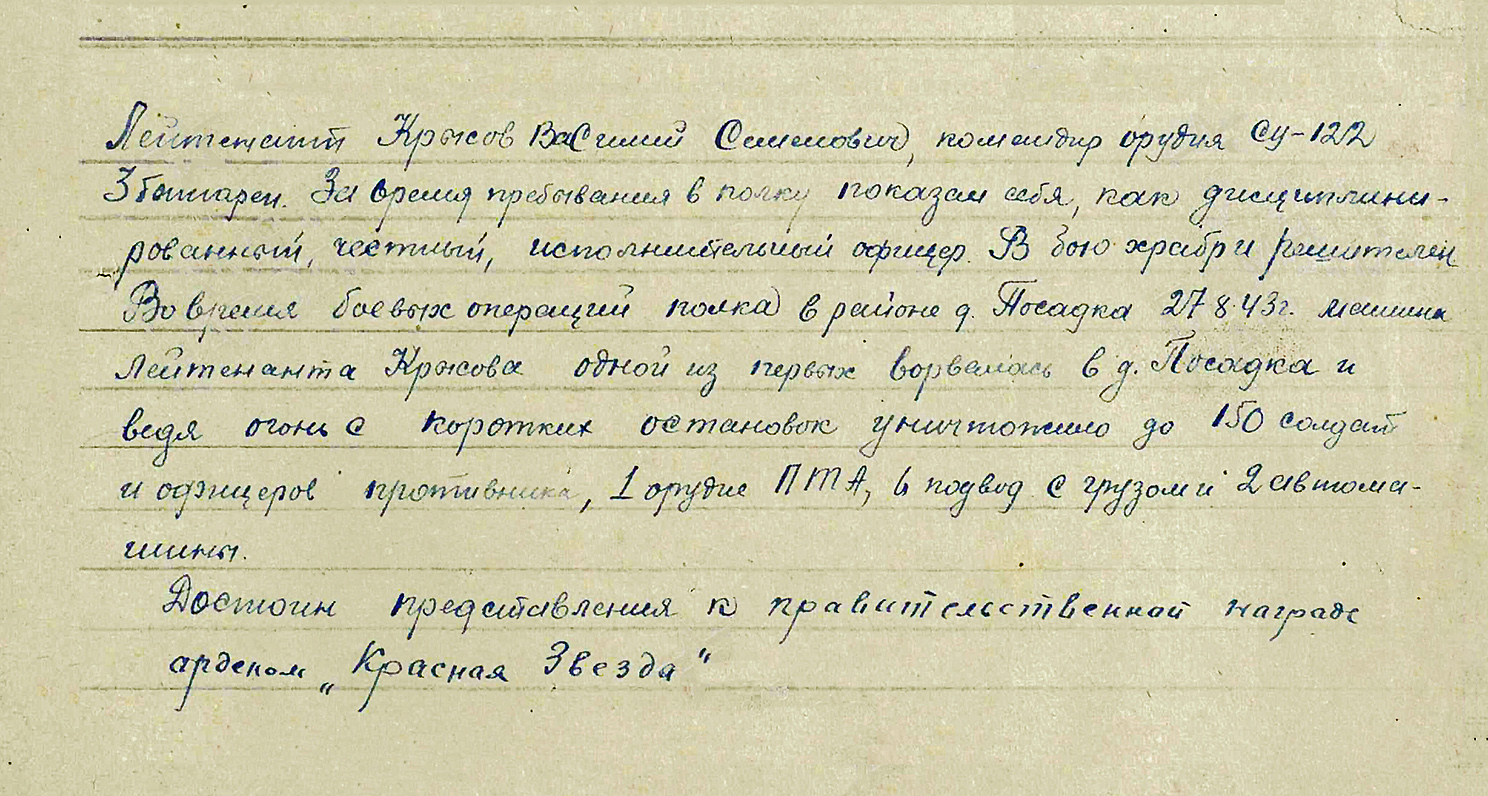 Лейтенант Крысов Василий Семенович, командир орудия СУ-122
3 батареи. За время пребывания в полку показал себя, как дисциплини-
рованный, честный, исполнительный офицер. В бою храбр и решителен
Во время боевых операций полка в районе д. Посадка 27.8.43г. машина
лейтенанта Крысова одной из первых ворвалась в д. Посадка и
ведя огонь с коротких остановок уничтожило до 150 солдат
и офицеров противника, 1 орудие ПТА, 6 подвод с грузом и 2 автома-
шины.
Достоин представления к правительственной награде
орденом „Красная Звезда"